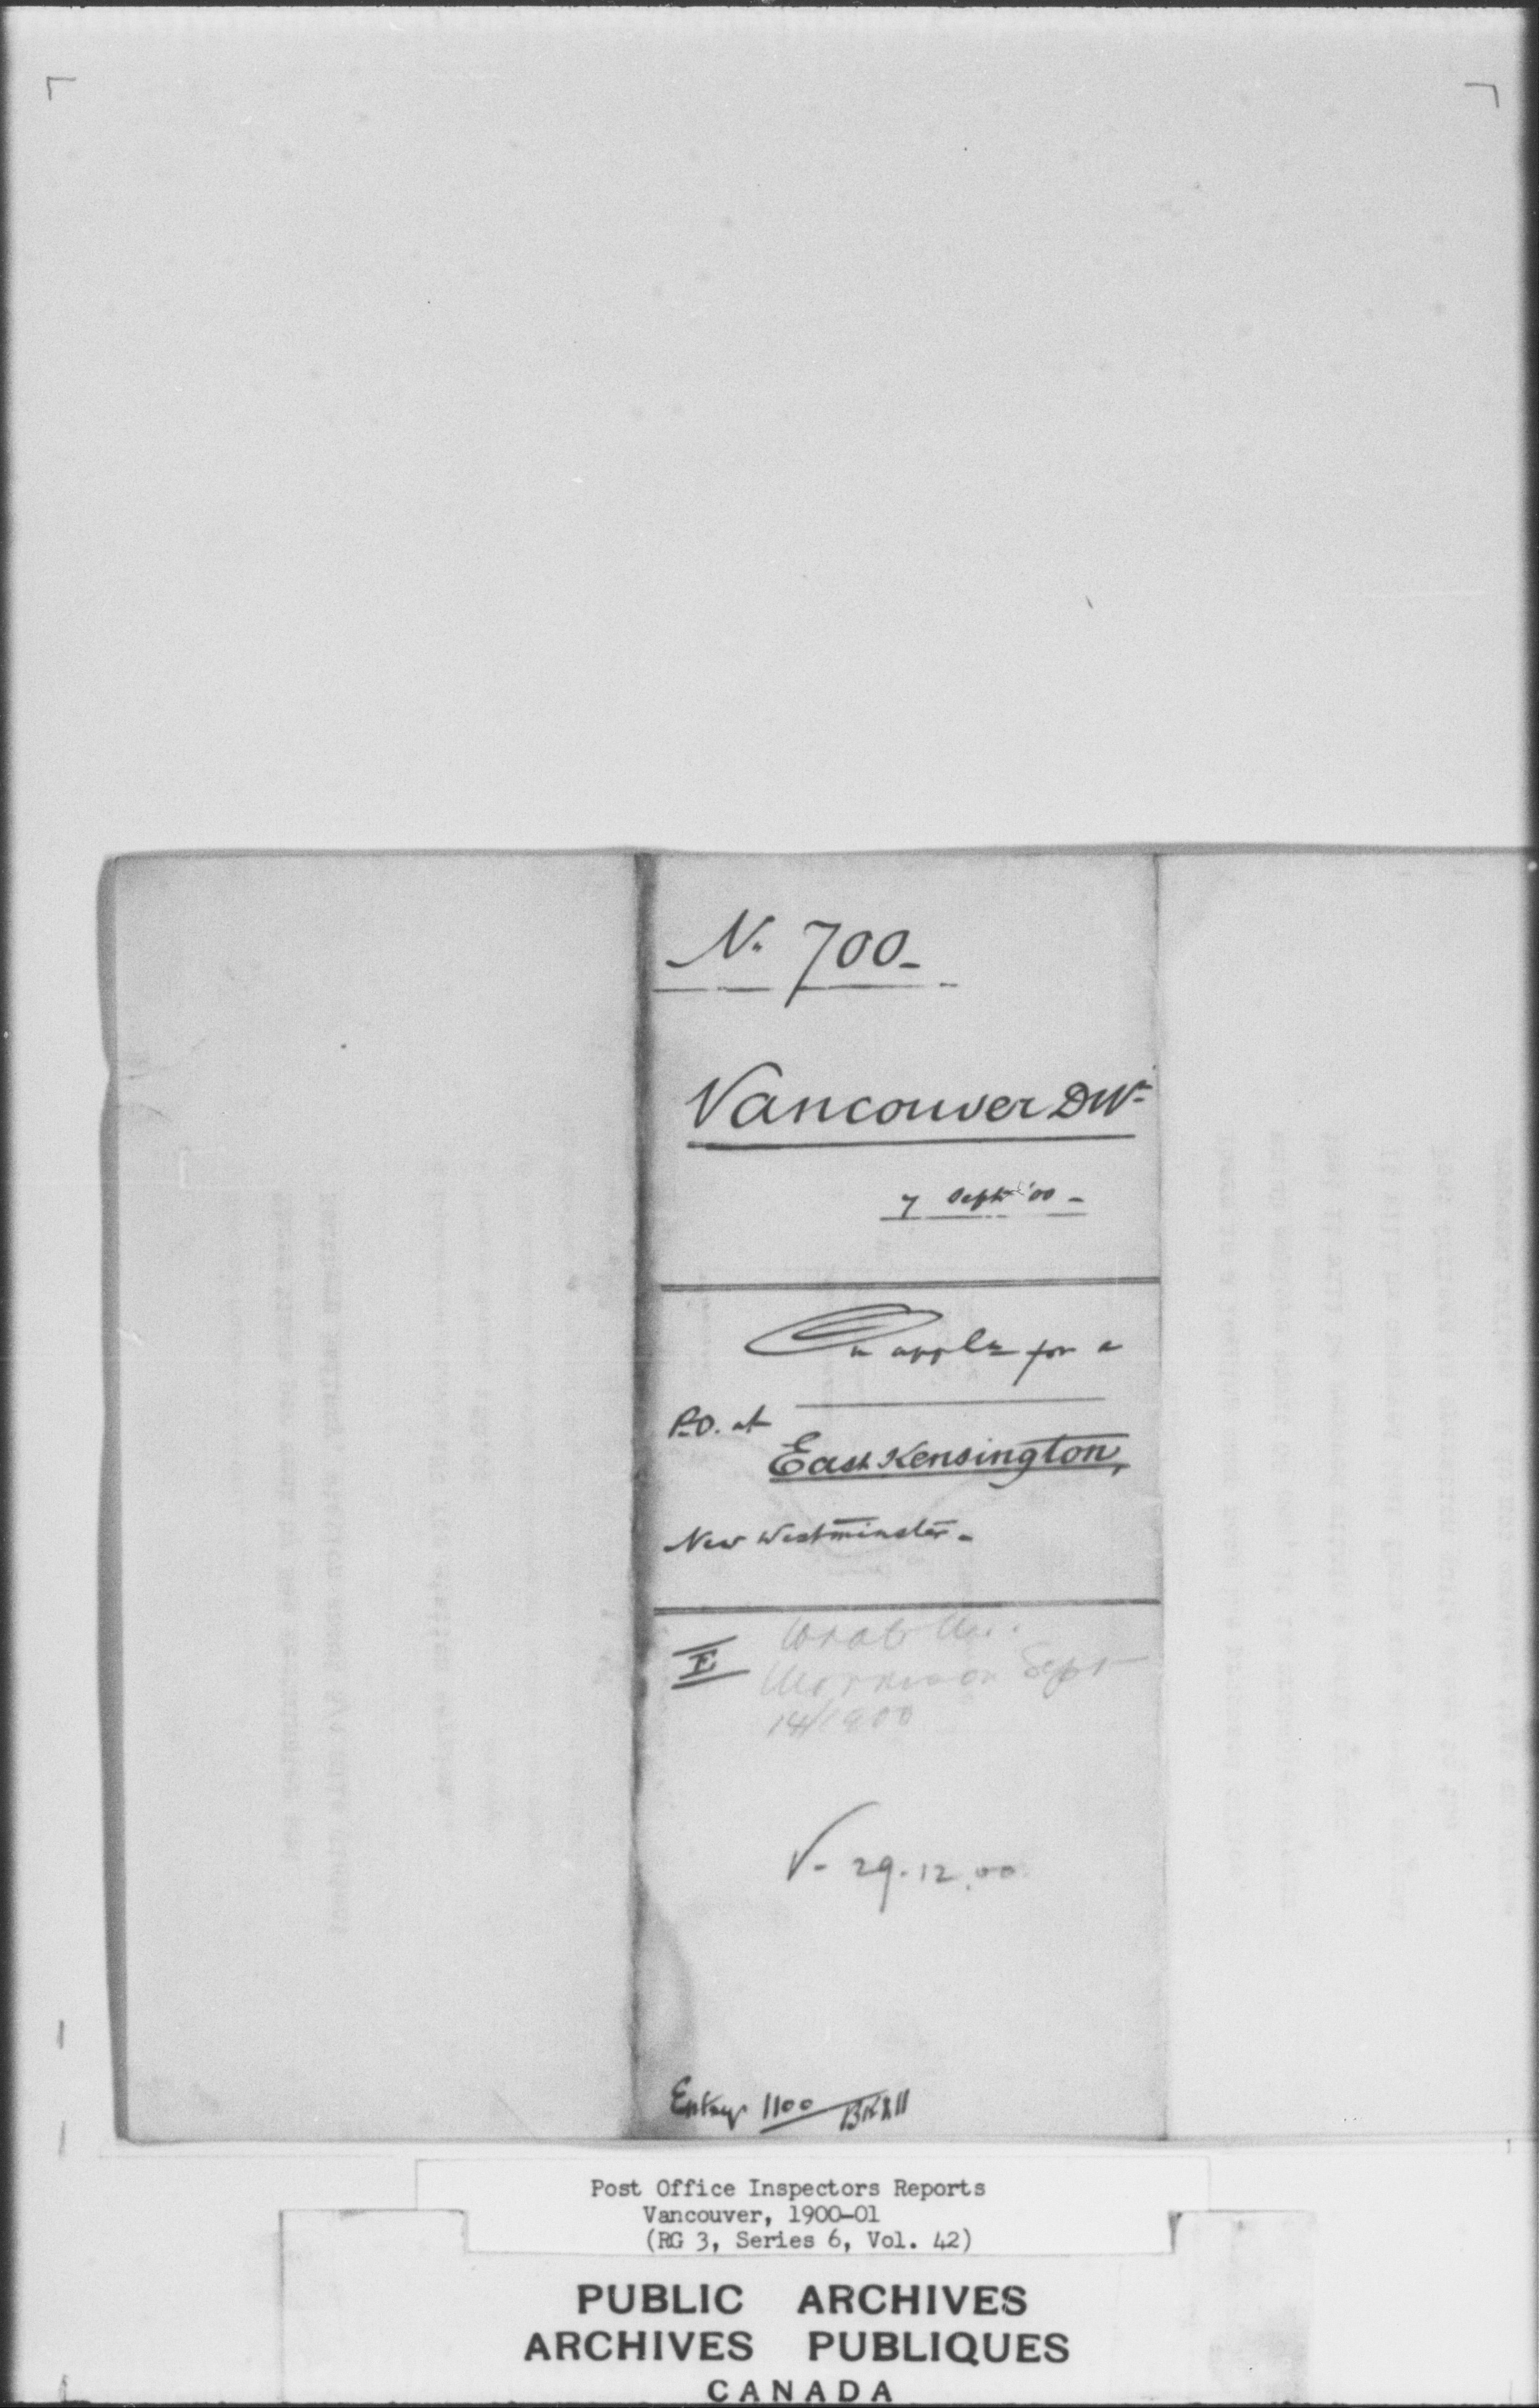 No. 700-
Vancouver Dvn
7 Sept '00-
On appln for a
P.O. at
East Kensington,
New Westminster-
E
Morrison Sept
14/1900
V- 29.12.00
Entry 1100
Post Office Inspectors Reports
Vancouver, 1900-01
(RG 3, Series 6, Vol. 42)
PUBLIC ARCHIVES
ARCHIVES PUBLIQUES
CANADA